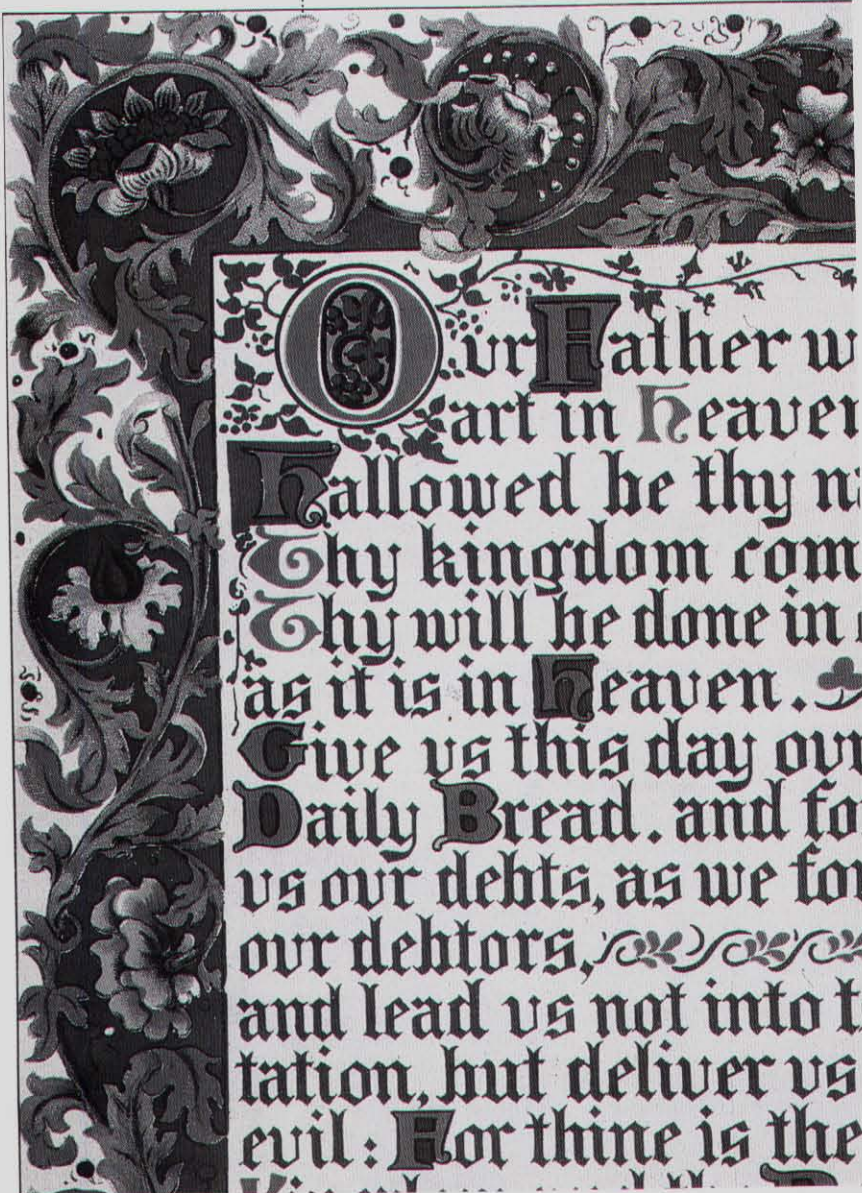 Ovr Father w
art in heaven
Hallowed be thy n
Thy kingdom com
Thy will be done in
as it is in Heaven.
Give vs this day ovr
Daily Bread. and fo
vs ovr debts, as we for
ovr debtors,
and lead vs not into t
tation, but deliver vs
evil: For thine is the